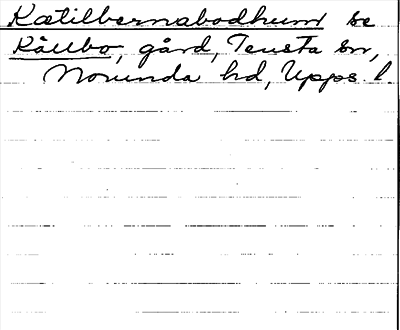 Kætilbernabodhum se
Källbo, gård, Tensta sn,
Norunda hd, Upps. l.